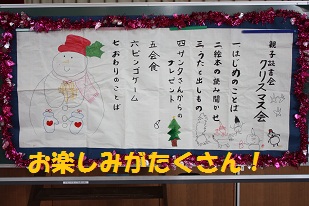 親子読書会
クリスマス会
一はじめのことば
二絵本の読み聞かせ
三うたと出しもの
四サンタさんからの
プレゼント
五会食
六ビンゴゲーム
七おわりのことば
お楽しみがたくさん！